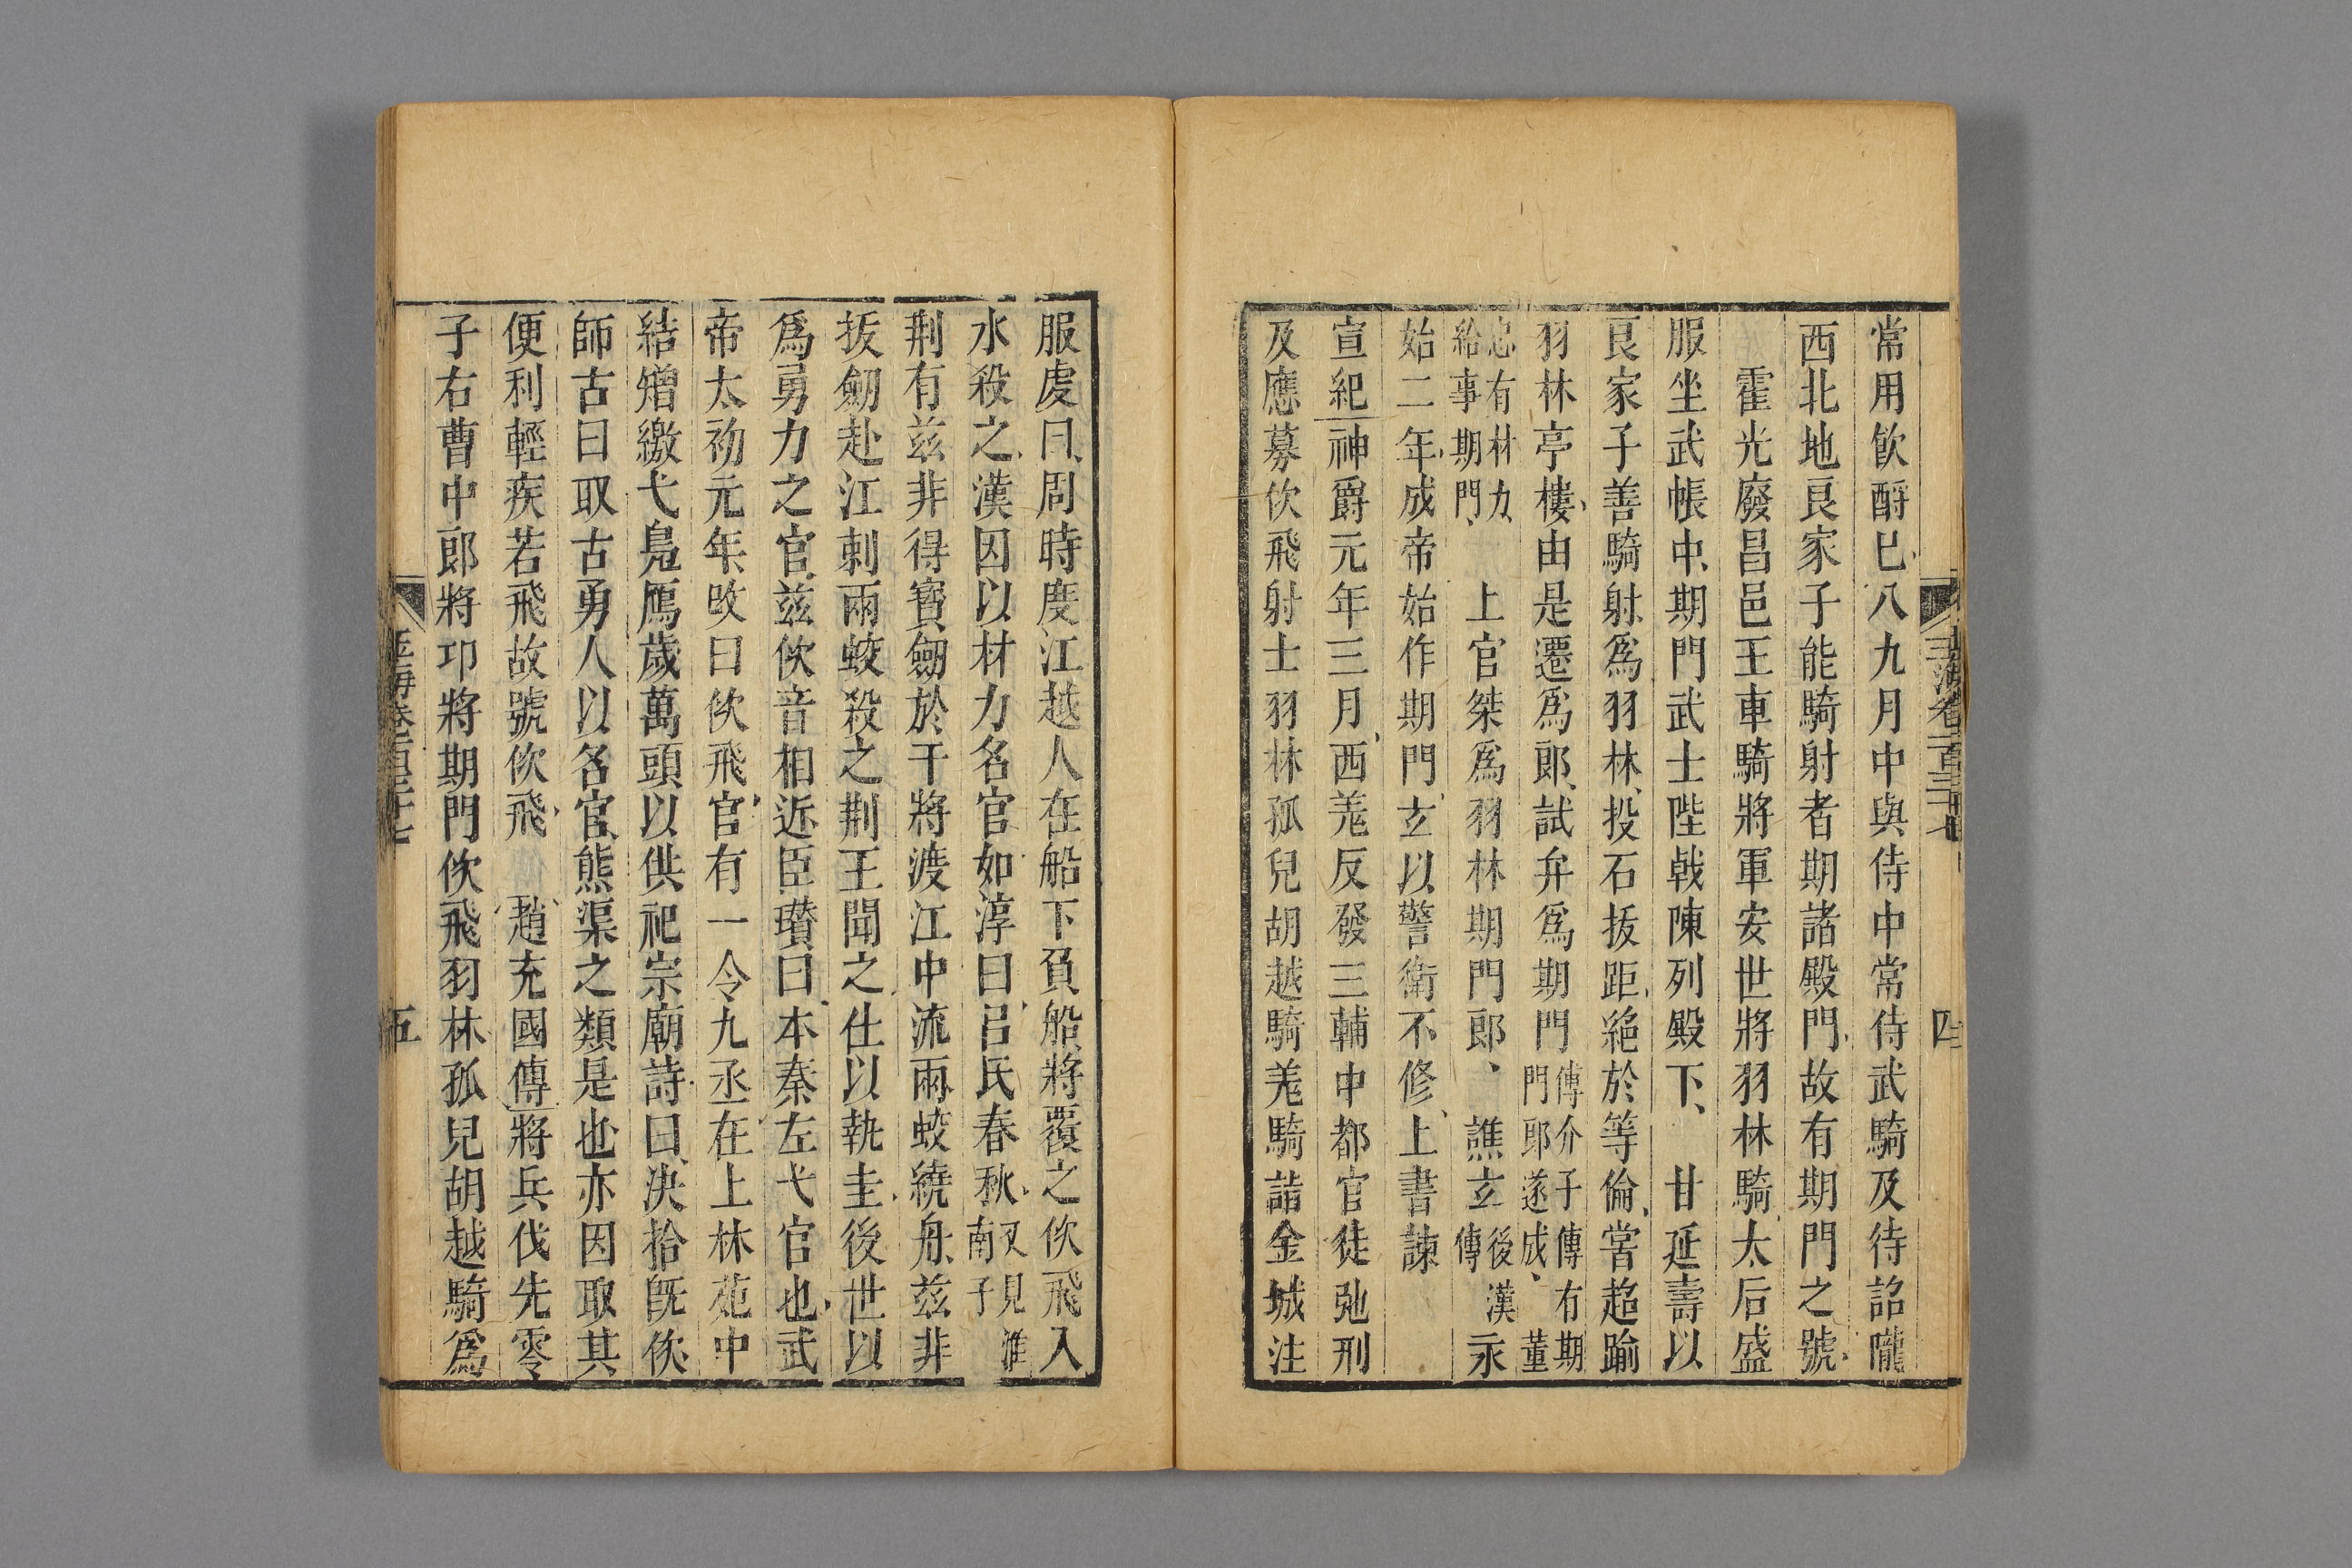 玉海卷一百三十七 四
常用飲酎巳八九月中與侍中常侍武騎及待詔隴
西北地良家子能騎射者期諸殿門故有期門之號
霍光廢昌邑王車騎將軍安世將羽林騎太后盛
服坐武帳中期門武士陛戟陳列殿下 甘延壽以
良家子善騎射爲羽林投石拔距絕於等倫嘗超踰
羽林亭樓由是遷爲郎試弁爲期門傅介子傳有期門郎遂成董
忠有材力給事期門 上官桀爲羽林期門郎 譙玄後漢傳永
始二年成帝始作期門玄以警衛不修上書諫
宣紀神爵元年三月西羗反發三輔中都官徒弛刑
及應募佽飛射士羽林孤兒胡越騎羗騎詣金城注
服虔曰周時度江越人在船下負船將覆之佽飛入
水殺之漢因以材力名官如淳曰呂氏春秋又見淮南子
荆有兹非得寳劒於干將渡江中流兩蛟繞舟兹非
拔劒赴江刺兩蛟殺之荆王聞之仕以執圭後世以
爲勇力之官兹佽音相近臣瓉曰本秦左弋官也武
帝太初元年改曰佽飛官有一令九丞在上林苑中
結矰繳弋鳬鴈歲萬頭以供祀宗廟詩曰決拾旣佽
師古曰取古勇人以名官熊渠之類是也亦因取其
便利輕疾若飛故號佽飛 趙充國傳將兵伐先零
子右曹中郎將卭將期門佽飛羽林孤兒胡越騎爲
玉海卷一百三十七 五